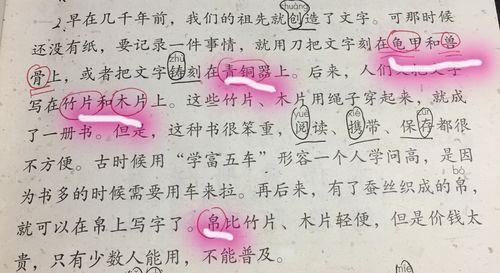 chuàng
2.早在几千年前，我们的祖先就创造了文字。可那时候
还没有纸，要记录一件事情，就用刀把文字刻在龟甲和兽
zhù
骨上，或者把文字铸刻在青铜器上。后来，人们又把文字
写在竹片和木片上。这些竹片、木片用绳子穿起来，就成
yuè xié cún
了一册书。但是，这种书很笨重，阅读、携带、保存都很
不方便。古时候用“学富五车”形容一个人学问高，是因
bó
为书多的时候需要用车来拉。再后来，有了蚕丝织成的帛，
就可以在帛上写字了。帛比竹片、木片轻便，但是价钱太
贵，只有少数人能用，不能普及。